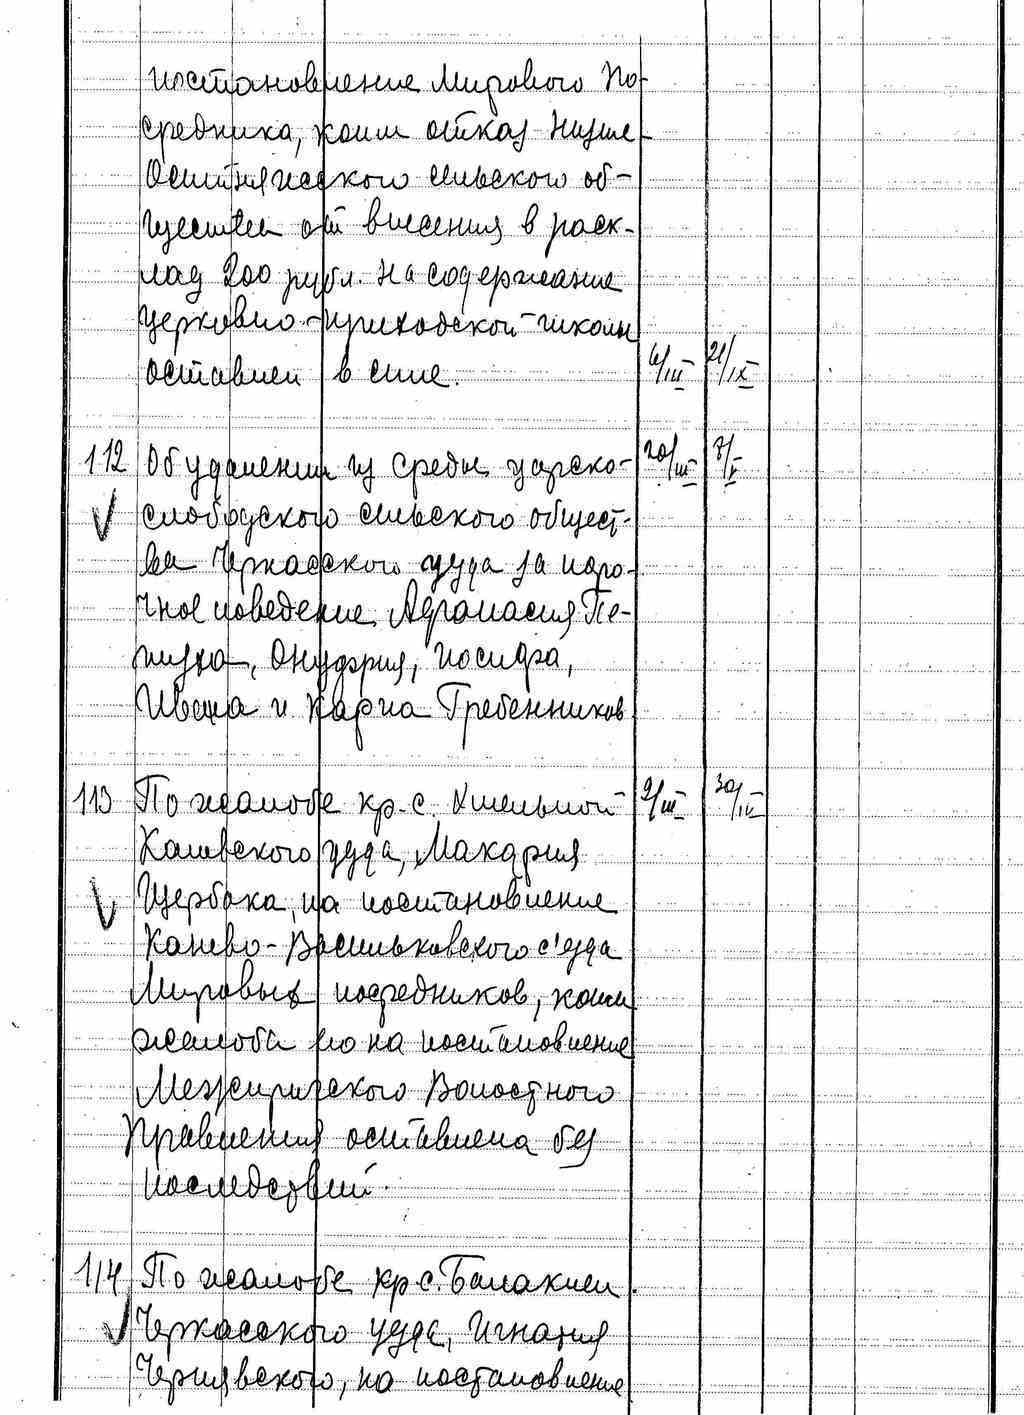 постановление Мирового По-
средника, коим отказ
сельского об-
щества от внесения в раск-
лад 200 рубл. на содержание
церковно-приходской школы
оставлен в силе. 21/IX
112 Об удалении из среды царско- 20/III 8/V
слободского сельского общест-
ва Черкасского уезда за поро-
чное поведение Афанасия Пе-
Онуфрия, Иосифа,
Ивана и Карпа Гребенников
113 По жалобе кр. с. Хмельной 9/III 30/IX
Каневского уезда, Макария
Щербака, на постановление
Канево-Васильковского с'езда
Мировых посредников, коим
жалоба его на постановление
Межиричского Волостного
Правления оставлена без
последствий.
114 По жалобе кр. с. Балаклеи
Черкасского уезда, Игнатия
Чернявского, на постановление